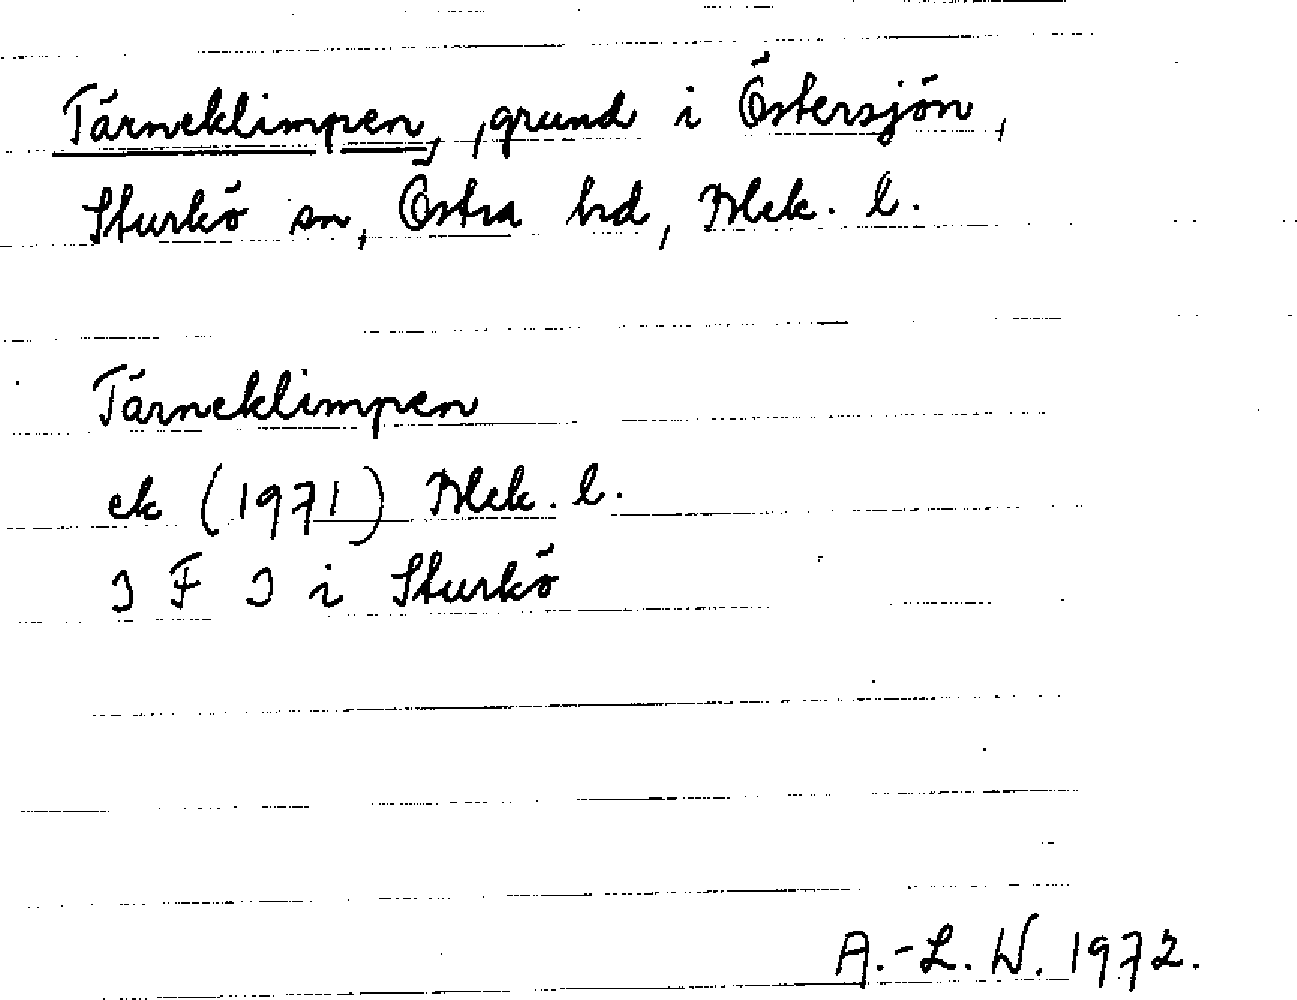 Tärneklimpen, grund i Östersjön,
Sturkö sn, Östra hd, Blek. l.
Tärneklimpen
ek (1971) Blek. l.
3 F 3 i Sturkö
A.-L. W. 1972.